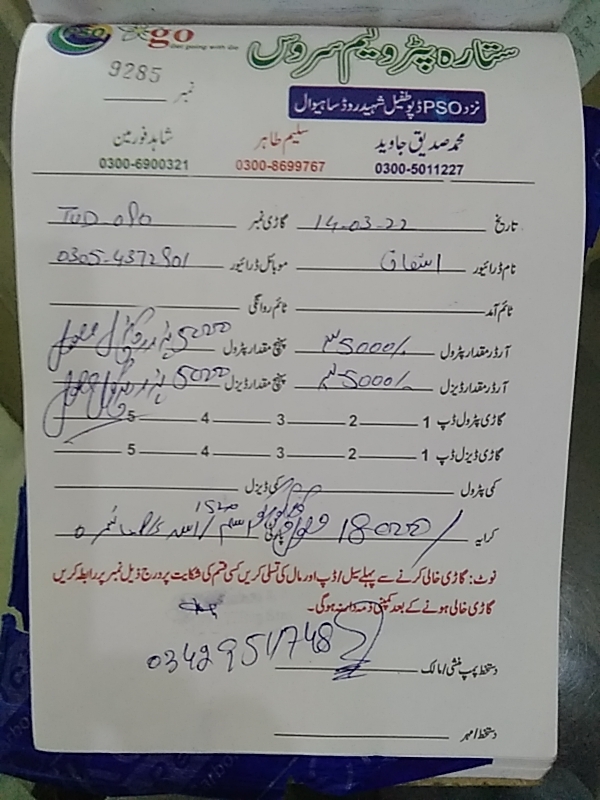 PSO go
Get going with Go
ستارہ پٹرولیم سروس
نمبر 9285
نزد PSO ڈپو طفیل شہید روڈ ساہیوال
محمد صدیق جاوید سلیم طاہر شاہد فورمین
0300-5011227 0300-8699767 0300-6900321
تاریخ 14-03-22 گاڑی نمبر TUD-080
نام ڈرائیور اشفاق موبائل ڈرائیور 0305-4372801
ٹائم آمد ٹائم روانگی
آرڈر مقدار پٹرول 5000/- پہنچ مقدار پٹرول 5000
آرڈر مقدار ڈیزل 5000/- پہنچ مقدار ڈیزل 5000
گاڑی پٹرول ڈپ 1 2 3 4 5
گاڑی ڈیزل ڈپ 1 2 3 4 5
کمی پٹرول کمی ڈیزل
کرایہ 18000/
نوٹ: گاڑی خالی کرنے سے پہلے سیل/ڈپ اور مال کی تسلی کریں کسی قسم کی شکایت پر درج ذیل نمبر پر رابطہ کریں
گاڑی خالی ہونے کے بعد کمپنی ذمہ دار نہ ہوگی۔
03429511748
دستخط پمپ منشی/مالک
دستخط/مہر